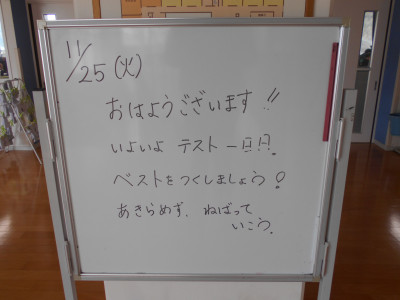 11/25(火)
おはようございます!!
いよいよ テスト一日目。
ベストをつくしましょう!
あきらめず、ねばって
いこう。